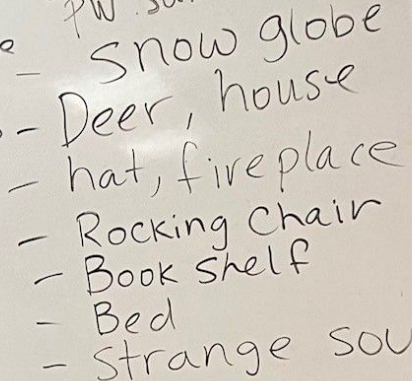 PW
- Snow globe
- Deer, house
- hat, fireplace
- Rocking Chair
- Book Shelf
- Bed
- Strange